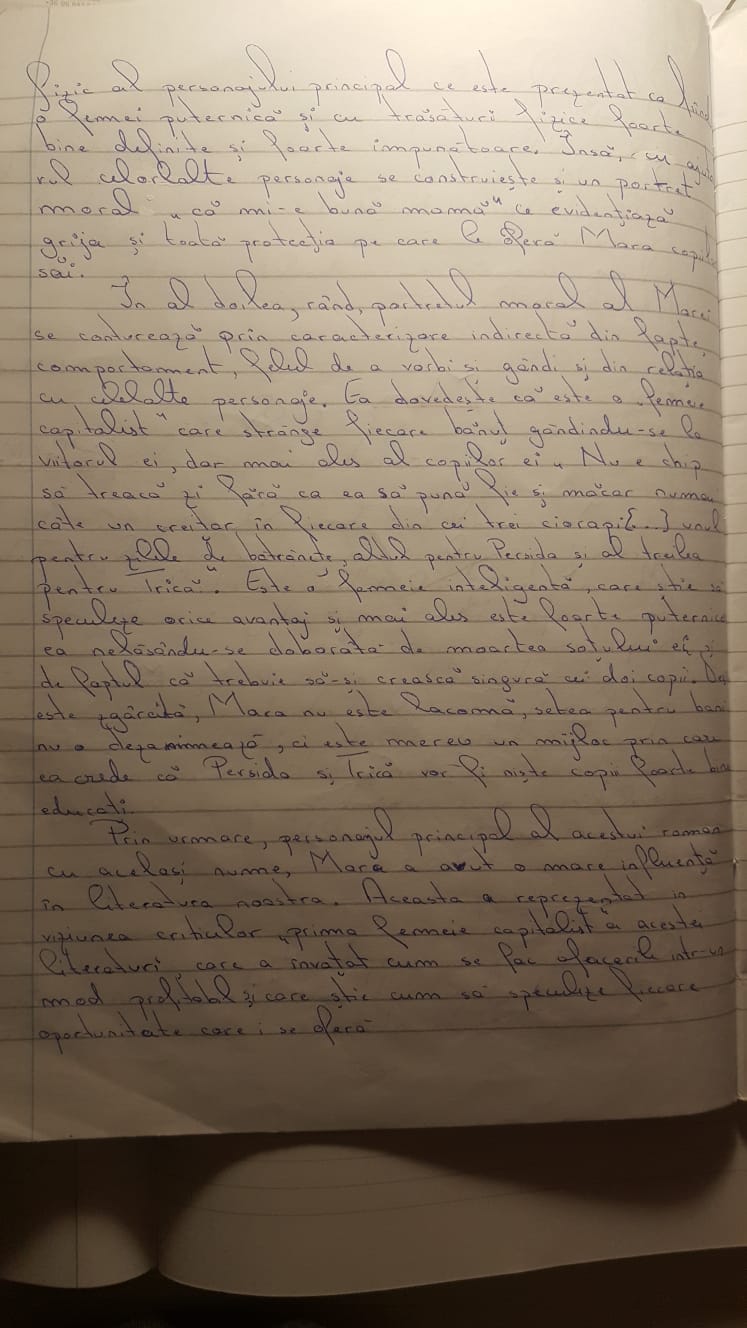 fizic al personajului principal ce este prezentat ca fiind
o femei puternică și cu trăsături fizice foarte
bine definite și foarte impunătoare. Însă, cu ajuto
rul celorlalte personaje se construiește și un portret
moral „că mi-e bună mama" ce evidențiază
grija și toată protecția pe care le oferă Mara copiilo
săi.
În al doilea, rând, portretul moral al Marei
se conturează prin caracterizare indirectă din fapte,
comportament, felul de a vorbi și gândi și din relația
cu celelalte personaje. Ea dovedește că este o „femeie
capitalist" care strânge fiecare bănuț gândindu-se la
viitorul ei, dar mai ales al copiilor ei „Nu e chip
să treacă zi fără ca ea să pună fie și măcar numai
câte un creițar în fiecare din cei trei ciorapi[...] unul
pentru zilele de bătrânețe, altul pentru Persida și al treilea
pentru Trică". Este o femeie inteligentă, care știe să
speculeze orice avantaj și mai ales este foarte puternică
ea nelăsându-se doborâtă de moartea soțului ei și
de faptul că trebuie să-și crească singură cei doi copii. Deși
este zgârcită, Mara nu este lacomă, setea pentru bani
nu o dezaminmează, ci este mereu un mijloc prin care
ea crede că Persida și Trică vor fi niște copii foarte bine
educați.
Prin urmare, personajul principal al acestui roman
cu același nume, Mara a avut o mare influență
în literatura noastră. Aceasta a reprezentat în
viziunea criticilor „prima femeie capitalist" a acestei
literaturi, care a învățat cum se fac afacerile intr-un
mod profitabil și care știe cum să speculeze fiecare
oportunitate care i se oferă